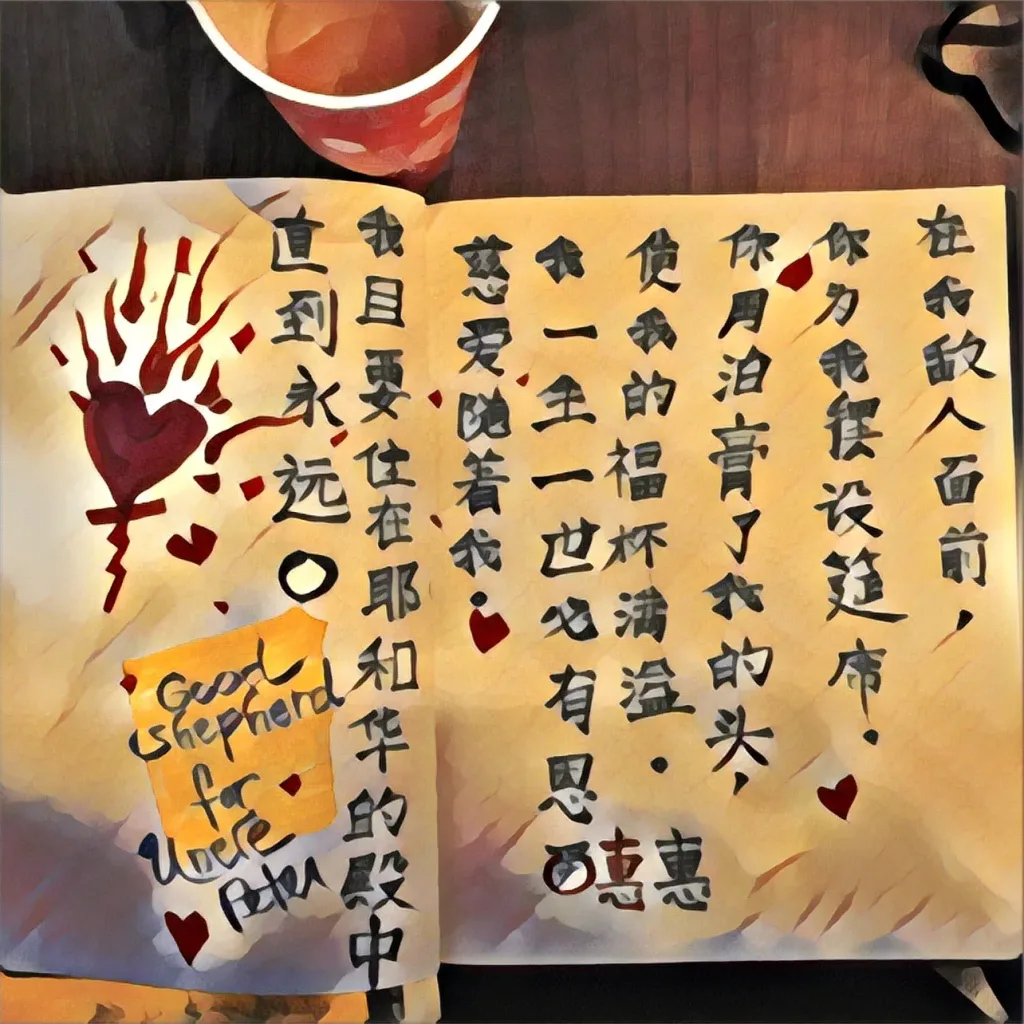 在我敌人面前，
你为我摆设筵席.
你用油膏了我的头，
使我的福杯满溢.
我一生一世必有恩
惠惠
慈爱随着我.
我且要住在耶和华的殿中
直到永远。
Good
shepherd
for
Uncle
Peter